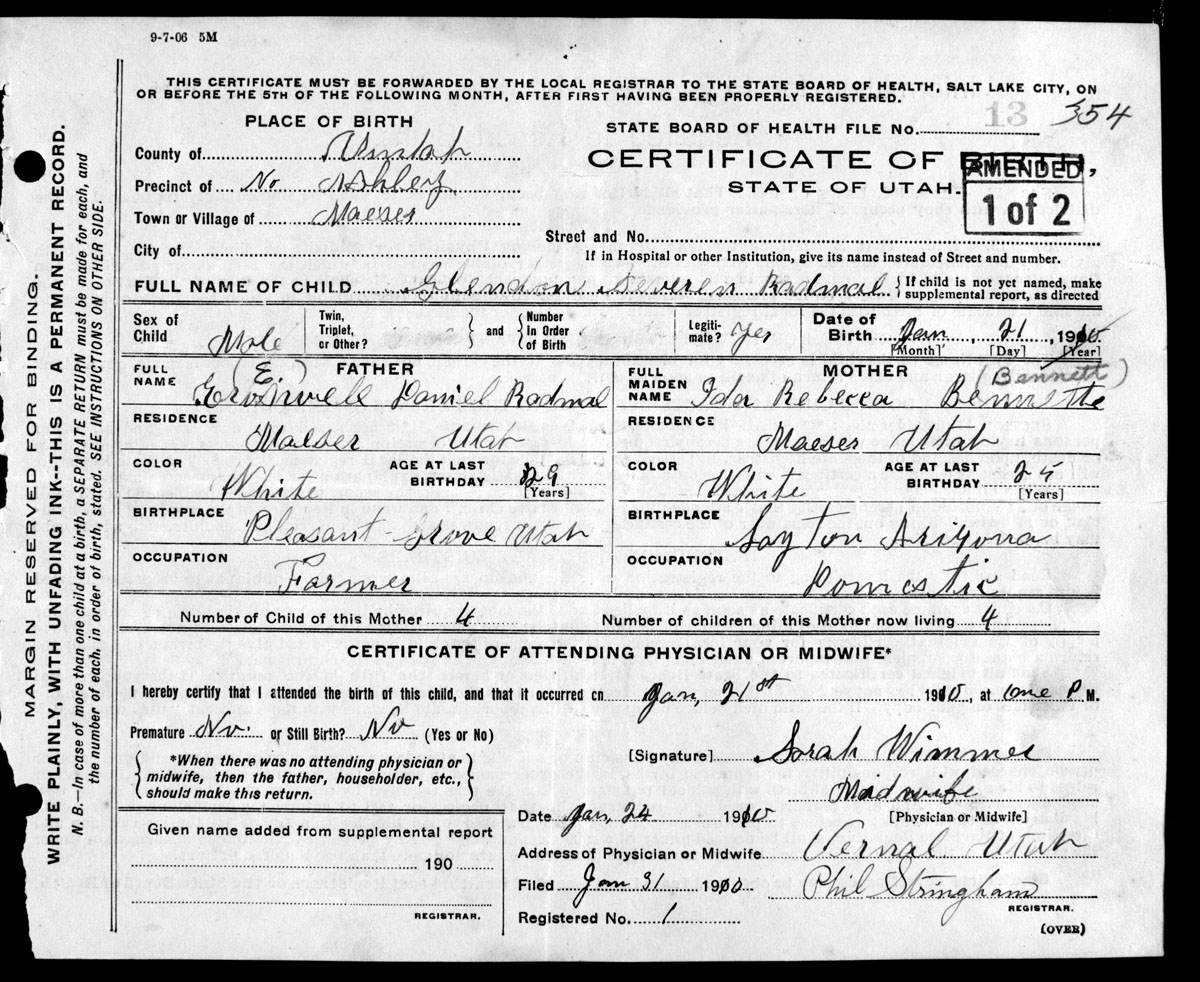 9-7-06 5M
THIS CERTIFICATE MUST BE FORWARDED BY THE LOCAL REGISTRAR TO THE STATE BOARD OF HEALTH, SALT LAKE CITY, ON
OR BEFORE THE 5TH OF THE FOLLOWING MONTH, AFTER FIRST HAVING BEEN PROPERLY REGISTERED.
PLACE OF BIRTH
STATE BOARD OF HEALTH FILE No. 13 354
County of Uintah
CERTIFICATE OF BIRTH,
Precinct of No Ashley
STATE OF UTAH.
AMENDED
1 of 2
Town or Village of Maeser
Street and No.
City of
If in Hospital or other Institution, give its name instead of Street and number.
FULL NAME OF CHILD Glendon Severen Radmal { If child is not yet named, make
supplemental report, as directed
Sex of Child Male Twin, Triplet, or Other? } and { Number In Order of Birth Legiti-mate? Yes Date of Birth Jan, 21, 1910
[Month] [Day] [Year]
FULL NAME (E.) FATHER
Daniel Radmal
FULL MAIDEN NAME MOTHER (Bennett)
Ida Rebecca
RESIDENCE Maeser Utah
RESIDENCE Maeser Utah
COLOR White AGE AT LAST BIRTHDAY 29 [Years]
COLOR White AGE AT LAST BIRTHDAY 25 [Years]
BIRTHPLACE Pleasant Grove Utah
BIRTHPLACE Layton Arizona
OCCUPATION Farmer
OCCUPATION Domestic
Number of Child of this Mother 4 Number of children of this Mother now living 4
CERTIFICATE OF ATTENDING PHYSICIAN OR MIDWIFE*
I hereby certify that I attended the birth of this child, and that it occurred on Jan, 21st 1910, at one P M.
Premature No. or Still Birth? No (Yes or No)
[Signature] Sarah Wimmer
{ *When there was no attending physician or
midwife, then the father, householder, etc.,
should make this return. }
Midwife
[Physician or Midwife]
Date Jan, 24 1910
Given name added from supplemental report
190
REGISTRAR.
Address of Physician or Midwife Vernal Utah
Filed Jan 31 1910 Phil Stringham
REGISTRAR.
Registered No. 1
(OVER)
MARGIN RESERVED FOR BINDING.
WRITE PLAINLY, WITH UNFADING INK--THIS IS A PERMANENT RECORD.
N. B.—In case of more than one child at birth, a SEPARATE RETURN must be made for each, and
the number of each, in order of birth, stated. SEE INSTRUCTIONS ON OTHER SIDE.